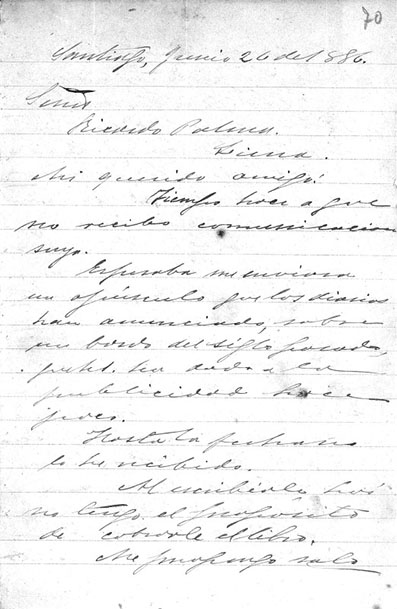 70
Santiago, Junio 26 del 886.
Señor
Ricardo Palma.
Lima.
Mi querido amigo:
Tiempo hace a que
no recibo comunicacion
suya.
Esperaba me enviara
un opúsculo que los diarios
han anunciado, sobre
un bardo del siglo pasado,
que Ud. ha dado a la
publicidad hace
poco.
Hasta la fecha no
lo he recibido.
Al escribirle hoi
no tengo el propósito
de cobrarle el libro.
Me propongo solo